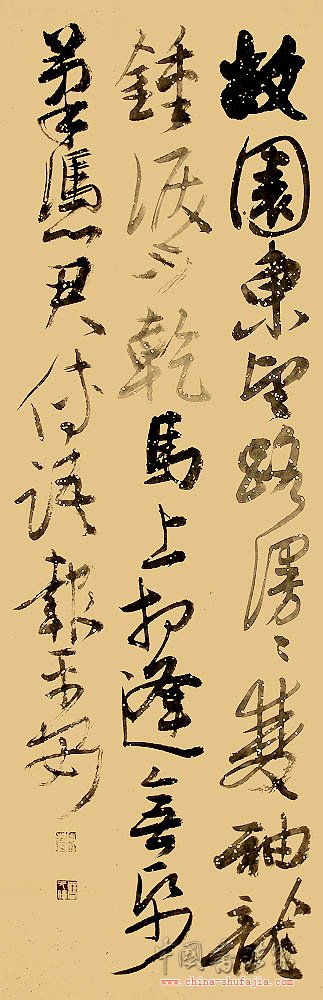 故園東望路漫〻雙袖龍
鍾淚不乾馬上相逢無紙
筆憑君傳語報平安
www.china-shufajia.com